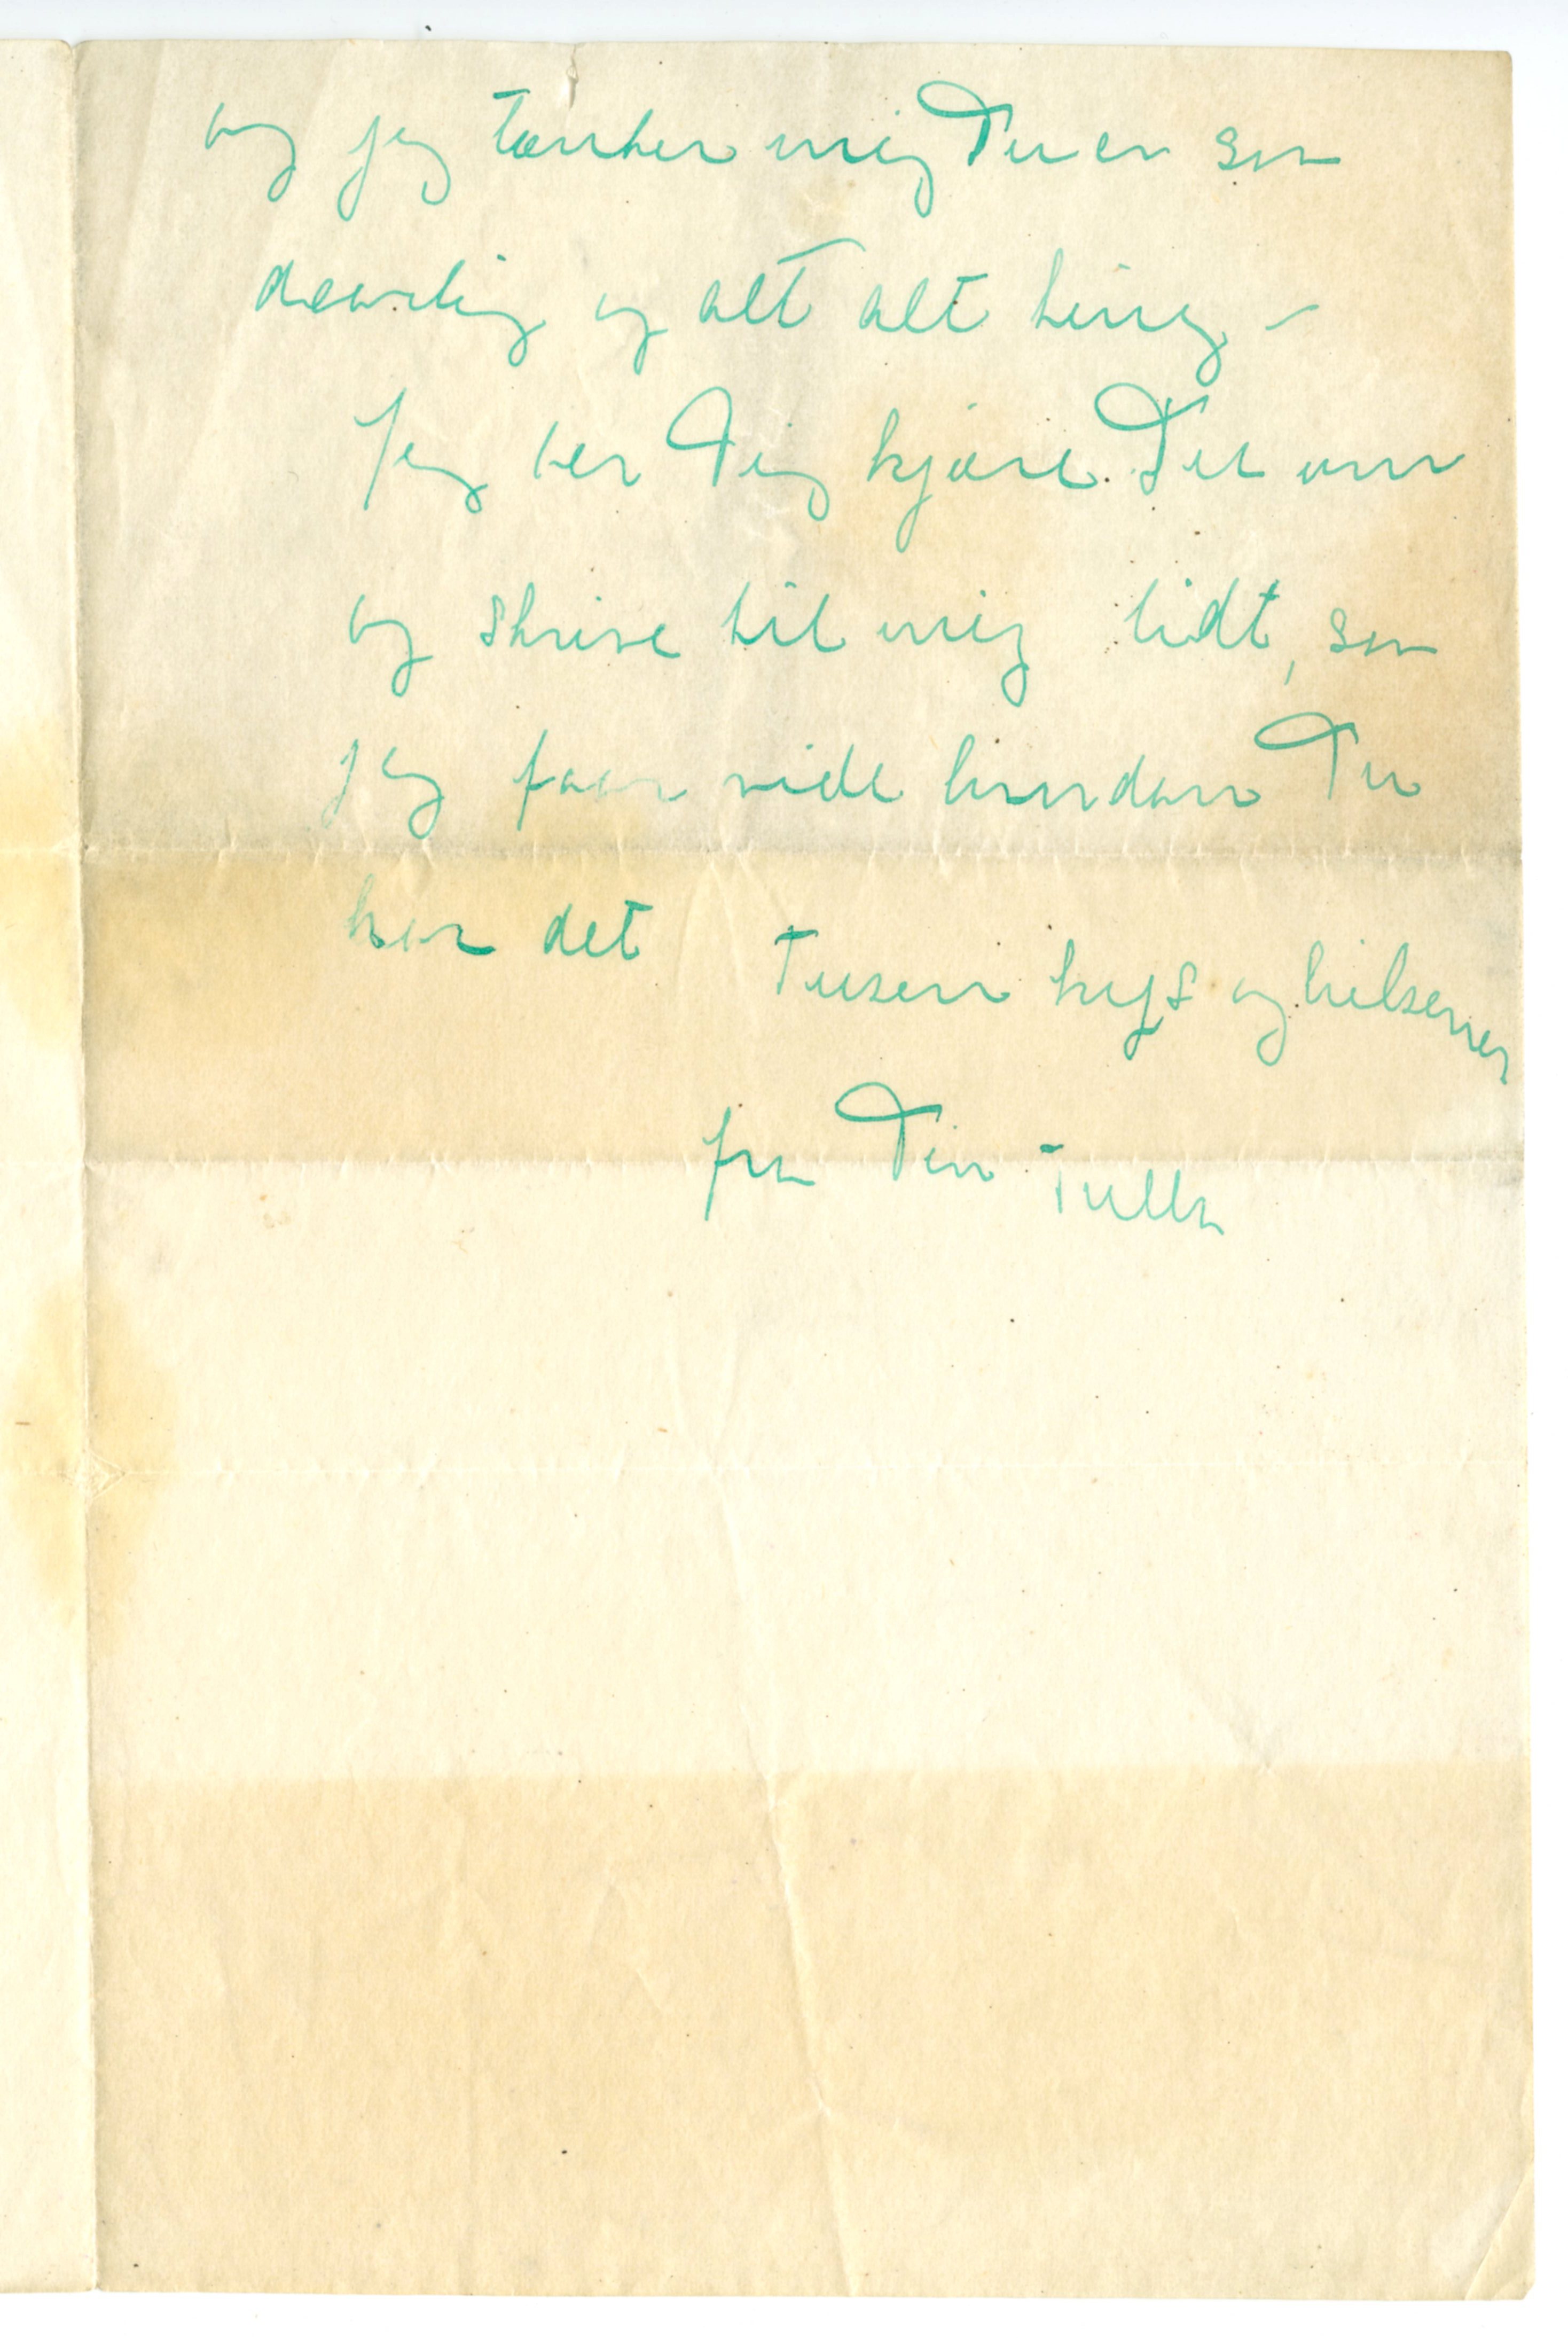 og jeg tænker mig Du er saa
daarlig og alt alt ting –
Jeg ber Dig kjære Du om
og skrive til mig lidt, saa
jeg faar vide hvordan Du
har det Tusen kys og hilsener
fra Din Tulla